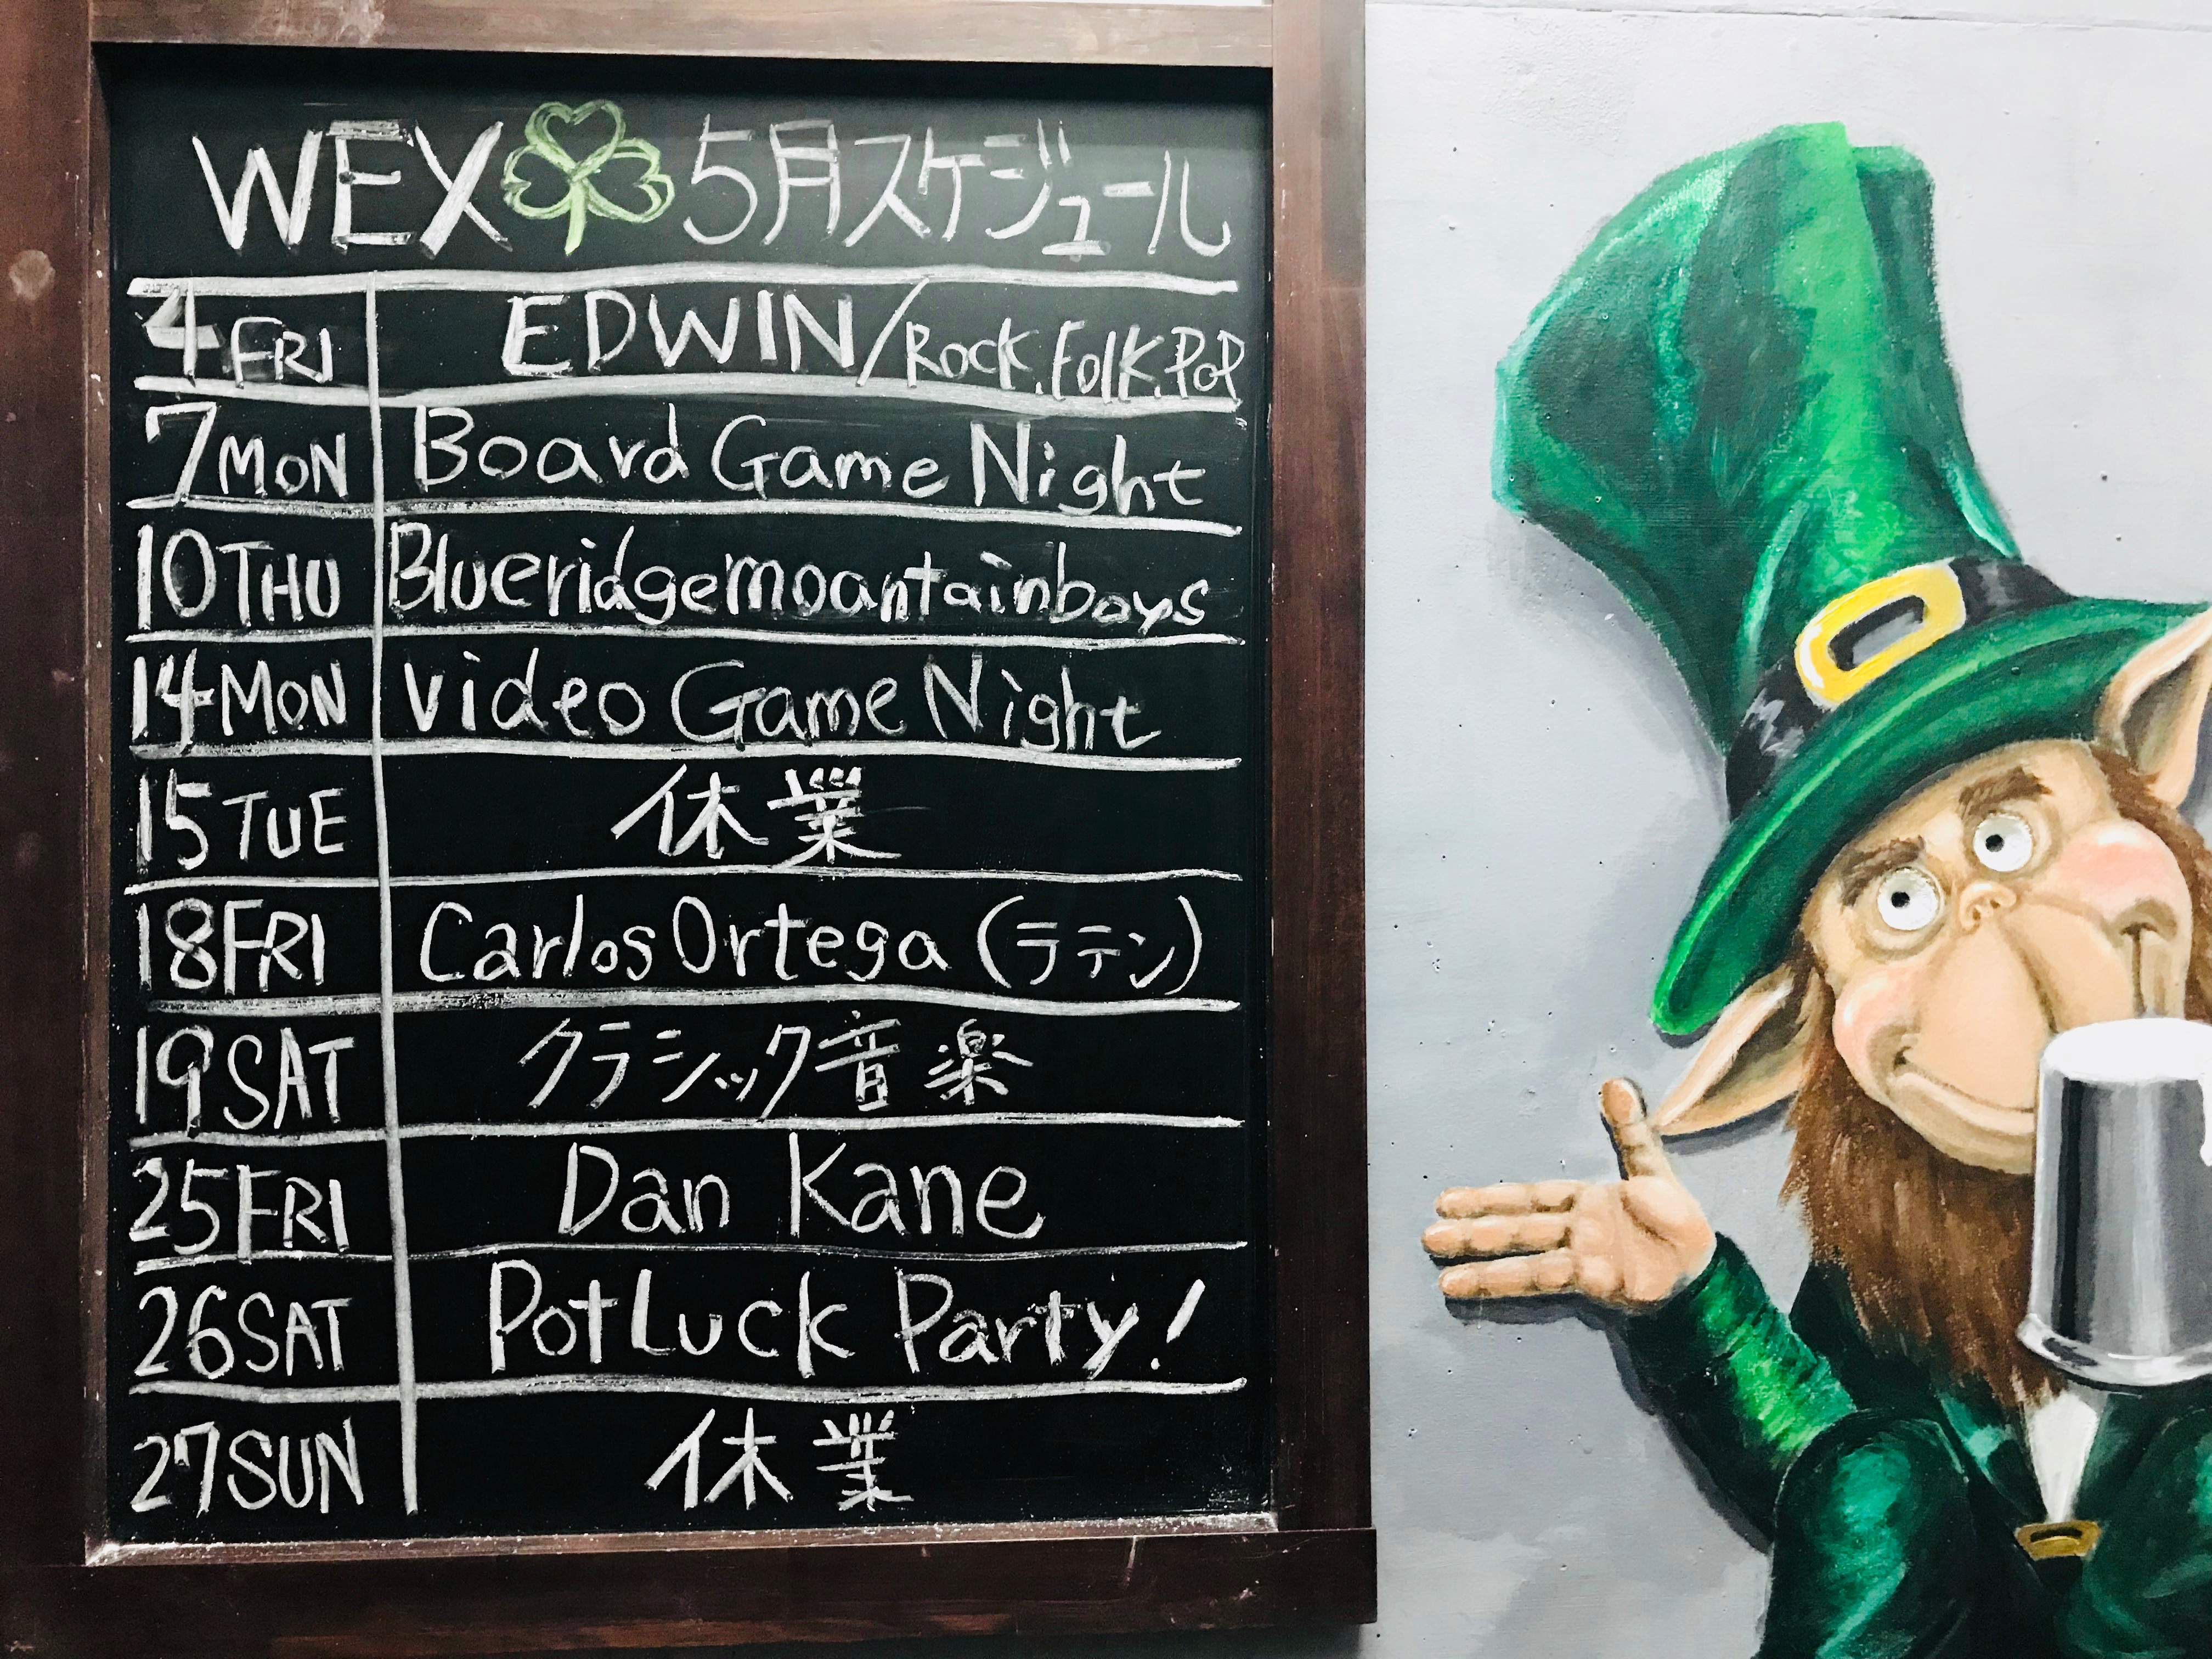 WEX 5月スケジュール
4 FRI EDWIN/Rock.Folk.PoP
7 MON Board Game Night
10 THU Blueridgemoantainboys
14 MON Video Game Night
15 TUE 休業
18 FRI Carlos Ortega (ラテン)
19 SAT クラシック音楽
25 FRI Dan Kane
26 SAT PotLuck Party!
27 SUN 休業